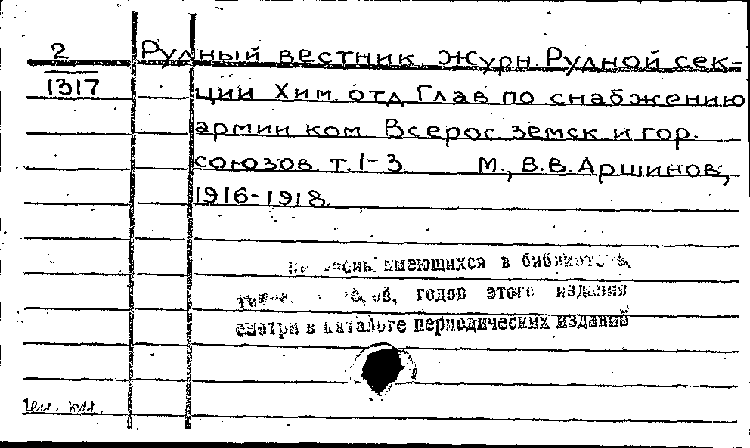 2
1317
Рудный вестник. Журн. Рудной сек-
ции Хим. отд. Глав. по снабжению
армии ком. Всерос. земск. и гор.
союзов. т. 1-3 М., В.В. Аршинов,
1916-1918.
имеющихся в библиотеке
годов этого издания
смотри в каталоге периодических изданий